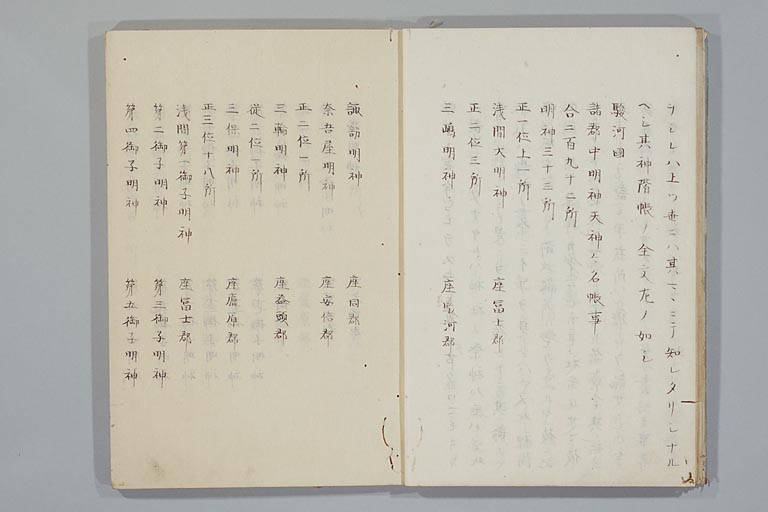 ラレレハ上ツ世ニハ其マヽニテ知レタリシナル
ヘシ其神階帳ノ全文左ノ如シ
駿河國
諸郡中明神天神之名帳事
合二百九十二所
明神三十三所
正一位上一所
浅間大明神 座冨士郡
正二位三所
三嶋明神 座駿河郡
諏訪明神 座同郡
奈吾屋明神 座安倍郡
正二位一所
三輪明神 座益頭郡
従二位一所
三保明神 座廬原郡
正三位十八所
浅間第一御子明神 座冨士郡
第二御子明神 第三御子明神
第四御子明神 第五御子明神